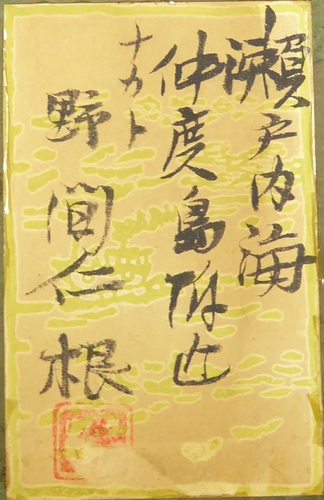 瀬戸内海
仲度島附近
ナカト
野間仁根